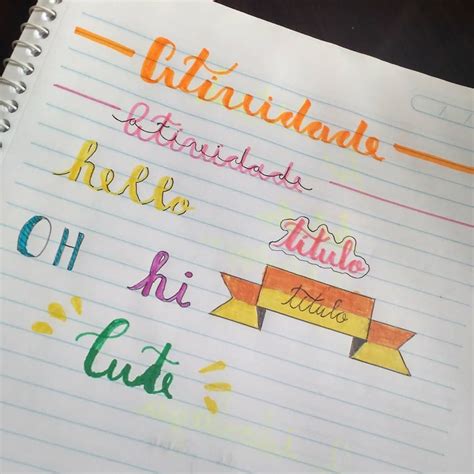 Atividade
Atividade
hello
título
OH hi
título
Cute